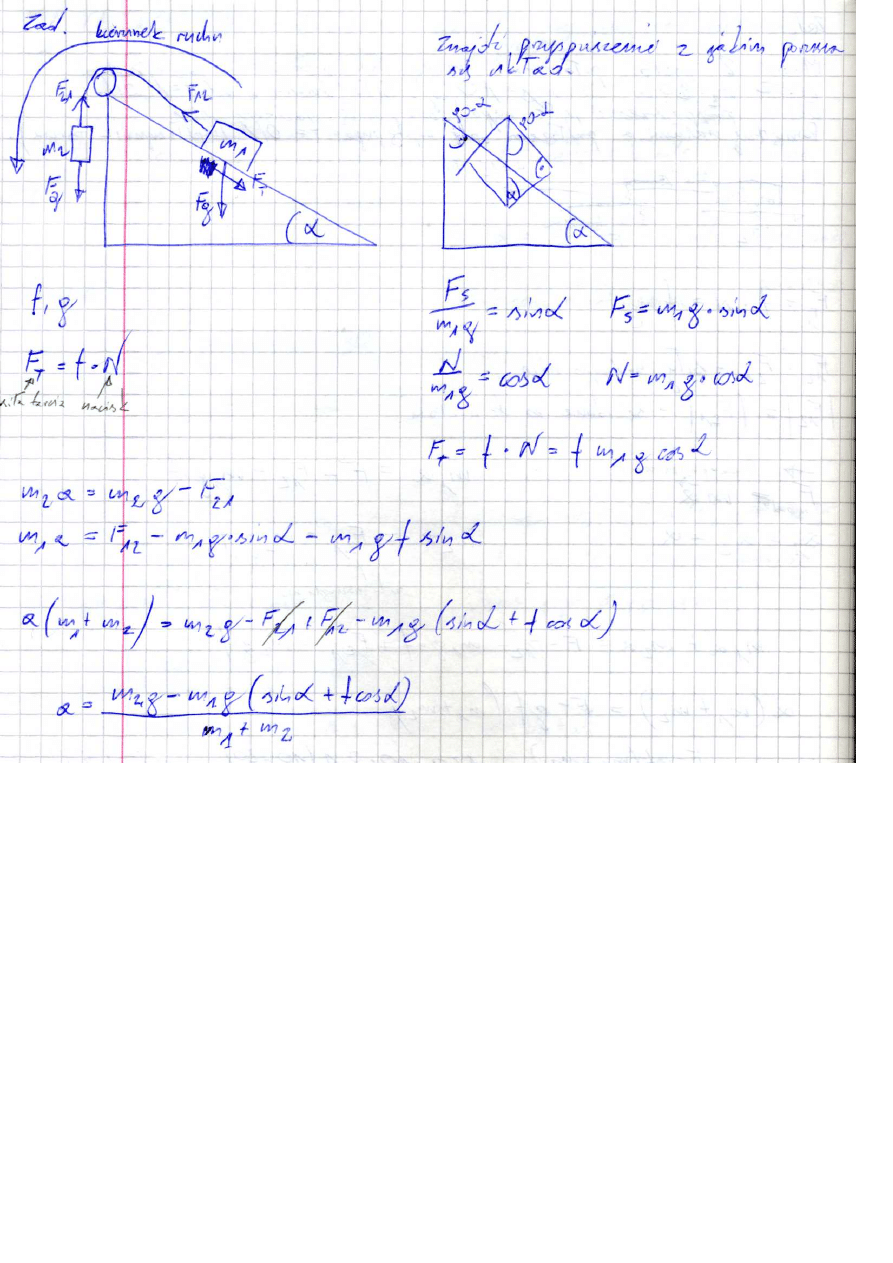 Zad. kierunek ruchu
Znajdź przyspieszenie z jakim porusza
się układ.
F21
F12
m2
m1
Fg
Fg
FT
α
90-α
90-α
α
α
f, g
FT = f · N
siła tarcia nacisk
Fs/m1g = sinα Fs = m1g · sinα
N/m1g = cosα N = m1g · cosα
FT = f · N = f m1 g cosα
m2 a = m2 g - F21
m1 a = F12 - m1g · sinα - m1 g f sinα
a(m1 + m2) = m2 g - F21 + F12 - m1g (sinα + f cosα)
a = m2g - m1g (sinα + f cosα) / m1 + m2